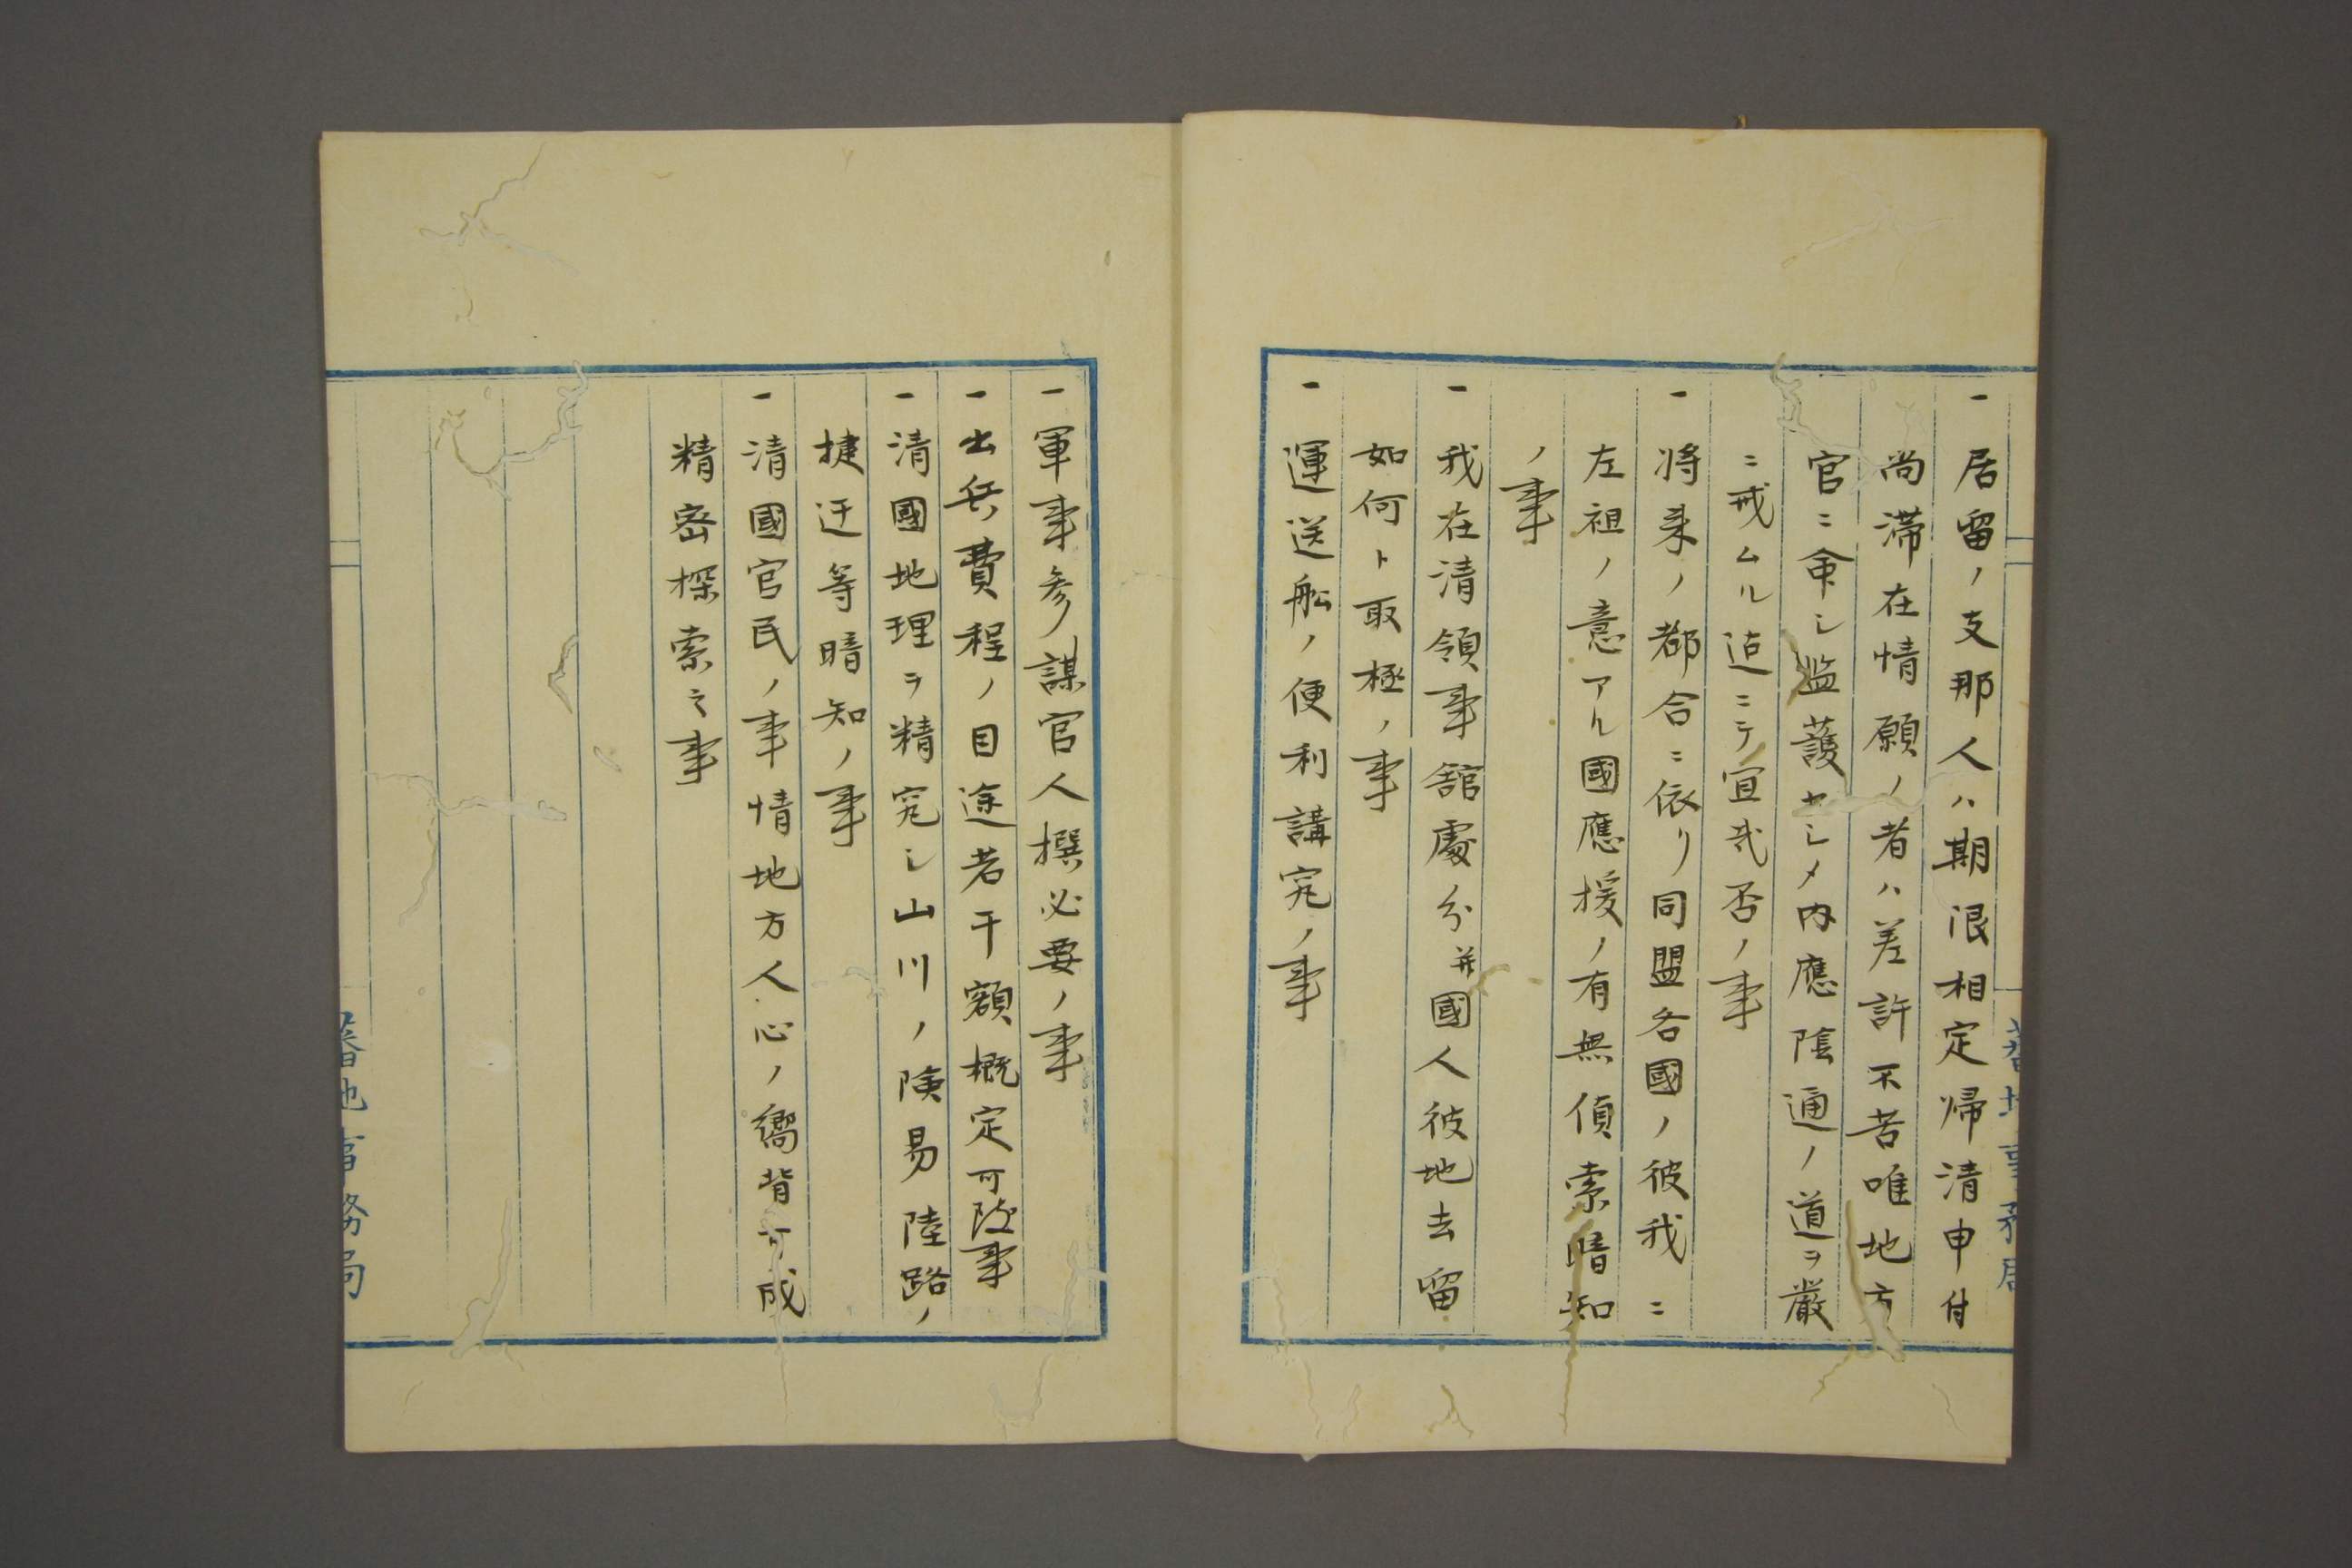 一居留ノ支那人ハ期限相定帰清申付
尚滞在情願ノ者ハ差許不苦唯地方
官ニ命シ監護セシメ内應陰通ノ道ヲ嚴
ニ戒ムル迠ニテ宜哉否ノ事
一将来ノ都合ニ依リ同盟各國ノ彼我ニ
左袒ノ意アル國應援ノ有無偵索暗知
ノ事
一我在清領事舘處分并國人彼地去留
如何ト取極ノ事
一運送舩ノ便利講究ノ事
蕃地事務局
一軍事参謀官人撰必要ノ事
一出兵費程ノ目途若干額概定可致事
一清國地理ヲ精究シ山川ノ険易陸路ノ
捷迂等暗知ノ事
一清國官民ノ事情地方人心ノ嚮背可成
精密探索之事
蕃地事務局